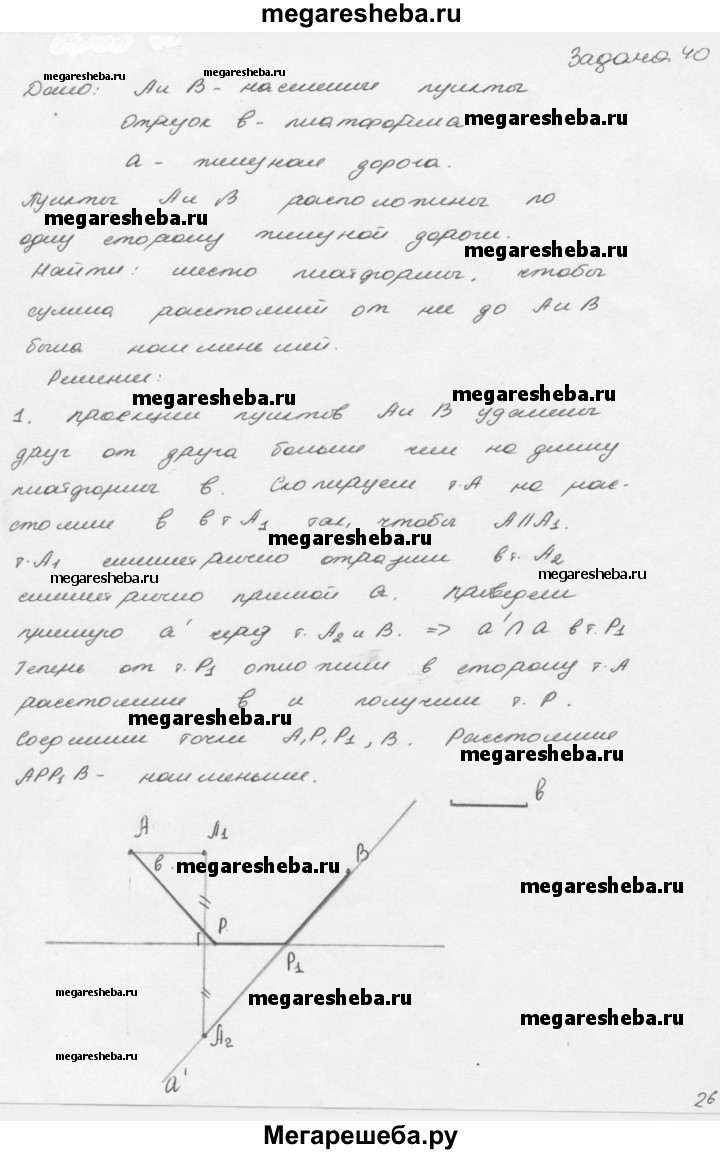 megaresheba.ru
Задача 40
megaresheba.ru
megaresheba.ru
Дано: А и В - населенные пункты
Отрезок в - платформа
megaresheba.ru
а - железная дорога.
Пункты А и В расположены по
megaresheba.ru
одну сторону железной дороги.
megaresheba.ru
Найти: место платформы, чтобы
сумма расстояний от нее до А и В
была наименьшей.
Решение:
megaresheba.ru
megaresheba.ru
1. проекции пунктов А и В удалены
друг от друга больше чем на длину
платформы в. Скопируем т. А на рас-
стояние в в т А1 так, чтобы А||А1.
megaresheba.ru
т. А1 симметрично отразим в т. А2
megaresheba.ru
megaresheba.ru
симметрично прямой а. Проведем
прямую а' через т. А2 и В. => а'∩а в т. Р1
Теперь от т. Р1 отложим в сторону т. А
расстояние в и получим т. Р.
megaresheba.ru
Соединим точки А, Р, Р1, В. Расстояние
megaresheba.ru
АРР1В - наименьшее.
в
А А1
В
в
megaresheba.ru
megaresheba.ru
Р
Р1
megaresheba.ru
megaresheba.ru
megaresheba.ru
А2
megaresheba.ru
а'
26
Мегарешеба.ру